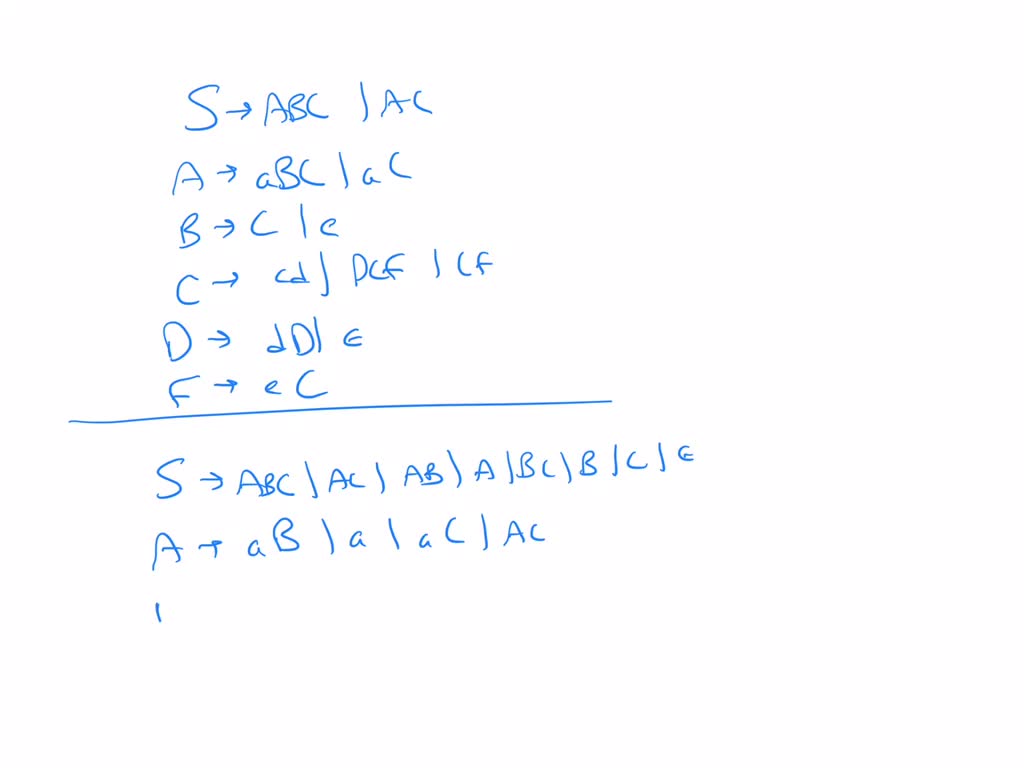 S → ABC | AC
A → aBC | aC
B → C | e
C → cd | DCF | CF
D → dD | ∈
F → eC
S → ABC | AC | AB | A | BC | B | C | ∈
A → aB | a | aC | AC